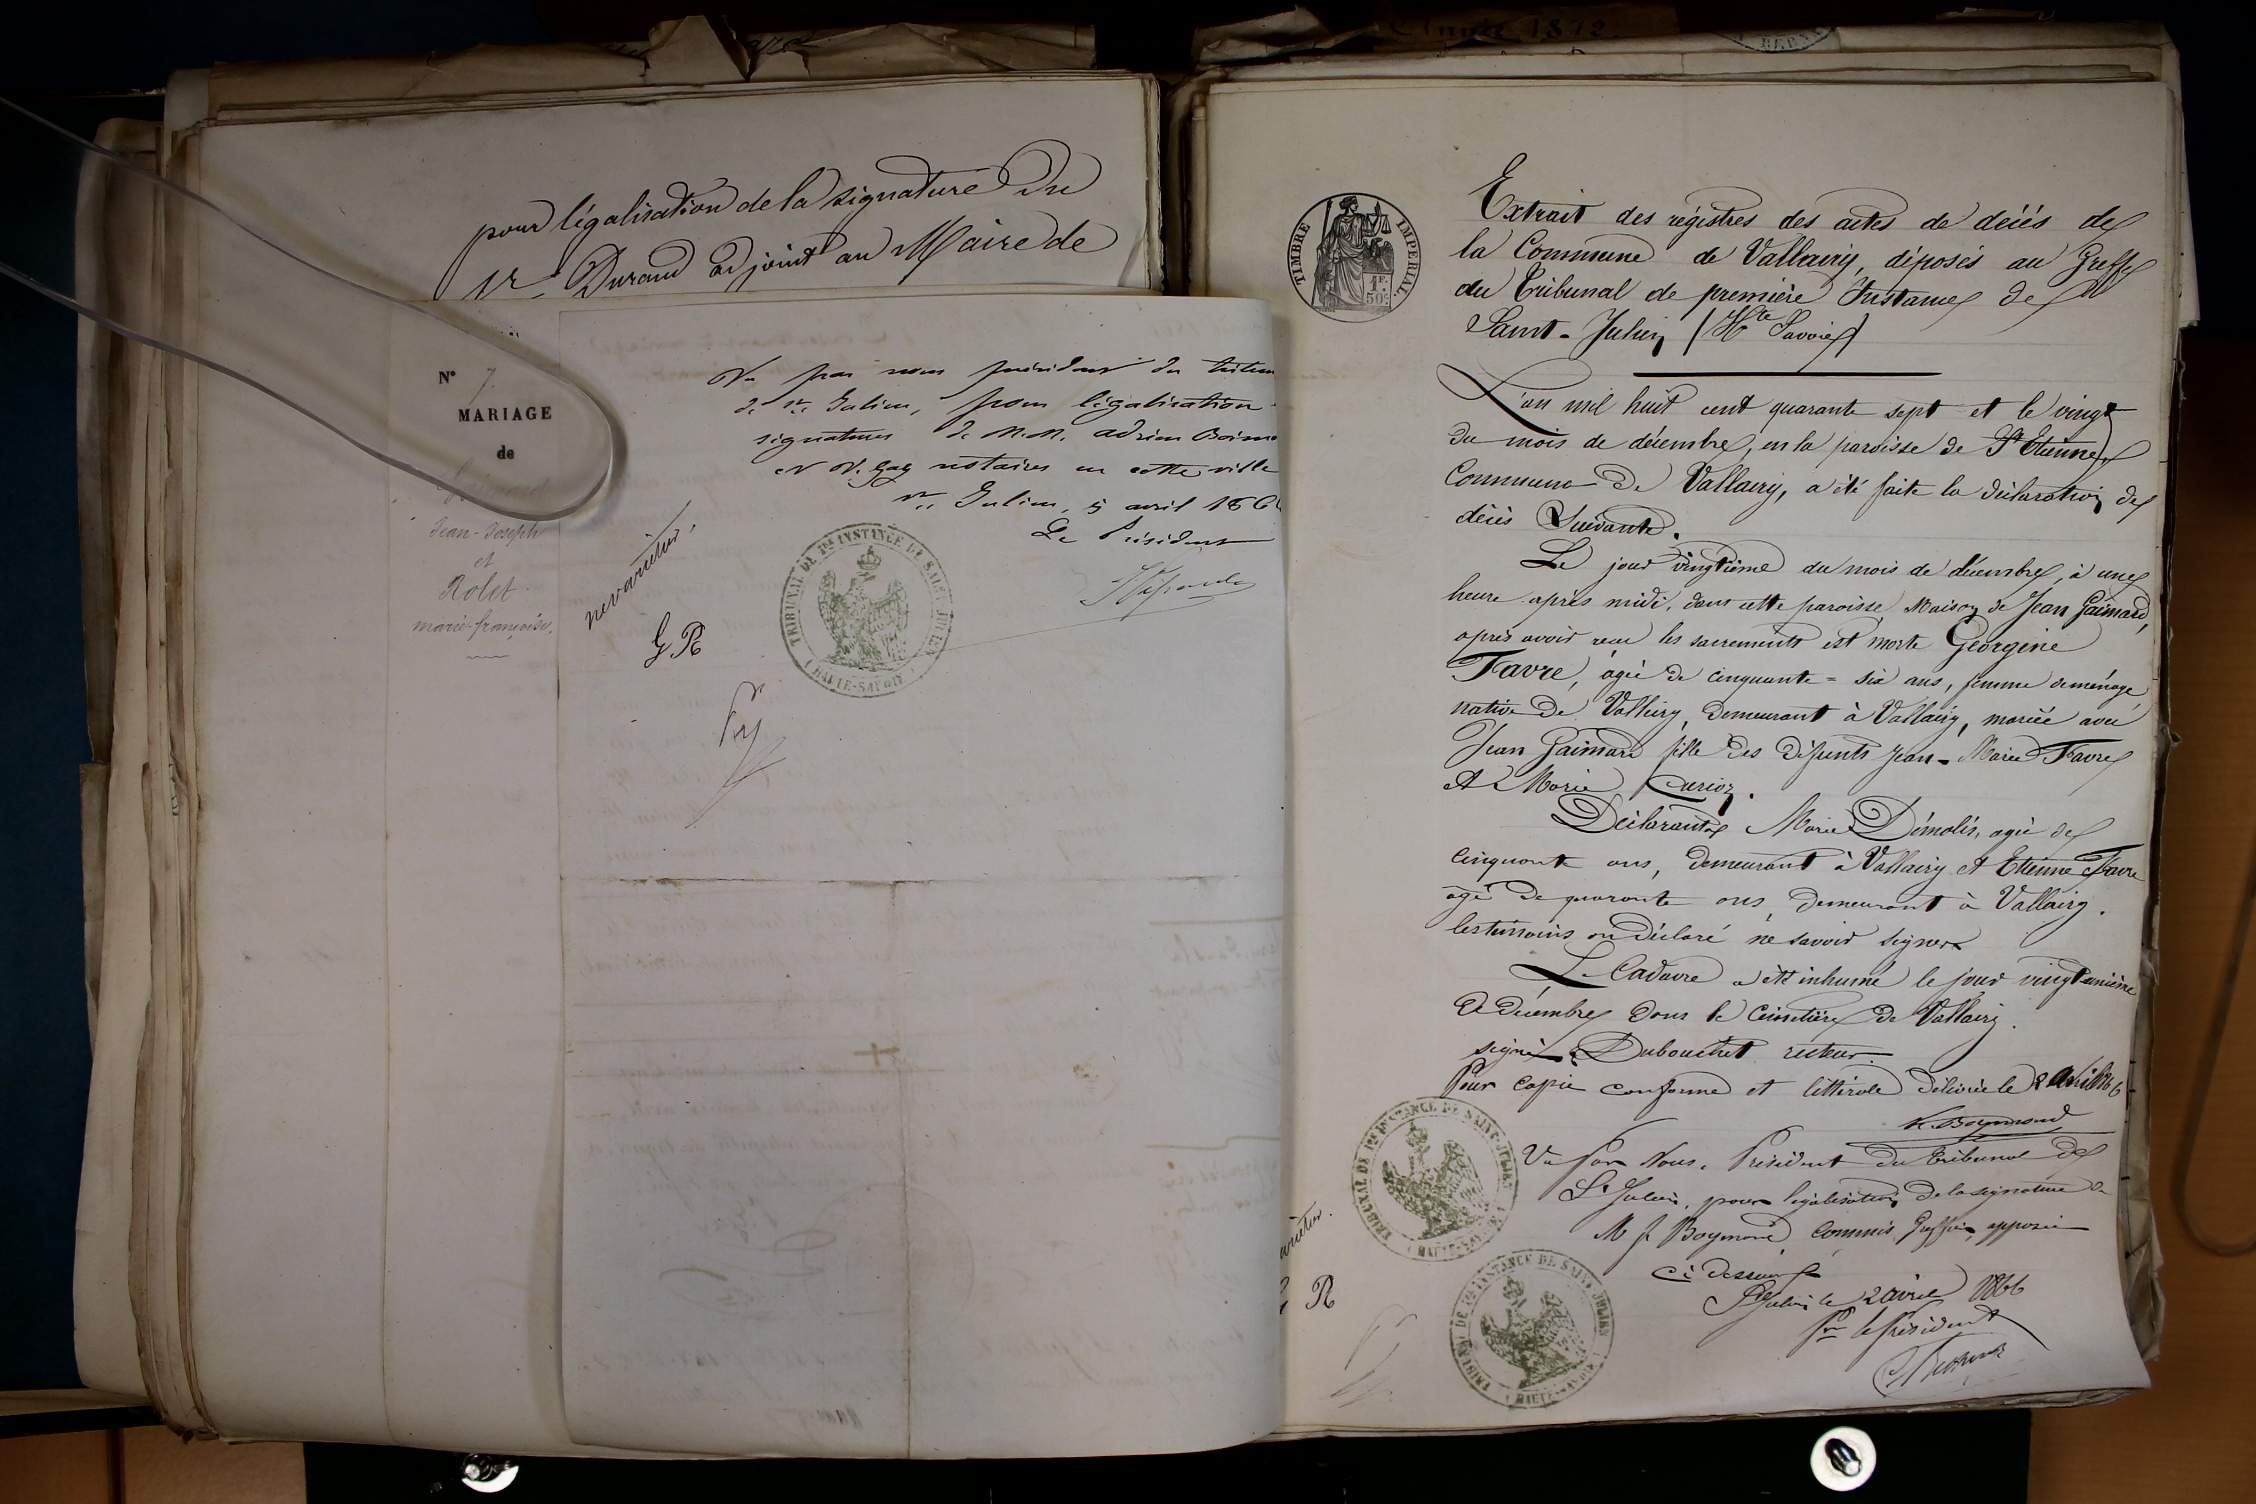 pour légalisation de la signature du
Mr. Durand adjoint au Maire de
N° 7.
MARIAGE
de
Jean-Joseph
et
Rolet
marie-françoise.
Vu par nous président du
de St. Julien, pour légalisation
signatures de M.M. adrien
et notaires en cette ville
St. Julien, 5 avril 186
Le Président
ne varietur.
G R
TRIBUNAL DE 1RE INSTANCE DE SAINT JULIEN
(HAUTE-SAVOIE)
Année 1872
TIMBRE IMPERIAL
1F.
50C.
Extrait des régistres des actes de décés de
la Commune de Valleiry, déposés au Greffe
du Tribunal de première Instance de
Saint-Julien (Hte Savoie)
L'an mil huit cent quarante sept et le vingt
du mois de décembre, en la paroisse de St Etienne,
Commune de Valleiry, a été faite la déclaration de
décès Suivante.
Le jour vingtième du mois de décembre, à une
heure après midi, dans cette paroisse, Maison de Jean Gaimard,
après avoir reçu les sacrements est morte Géorgine
Favre, âgée de cinquante = six ans, femme de ménage,
native de Valleiry, demeurant à Valleiry, mariée avec
Jean Gaimard fille des défunts Jean-Marie Favre
et Marie Curioz.
Déclarants Marie Démolis, agée de
cinquante ans, demeurant à Valleiry et Etienne Favre
agé de quarante ans, demeurant à Valleiry.
les témoins on déclaré ne savoir signer
Le Cadavre a été inhumé le jour vingt unième
de décembre dans le Cimetière de Valleiry.
signé: Dubouchet recteur.
Pour copie conforme et littérale délivrée le 2 Avril 1866
Boymond
Vu par Nous, Président du Tribunal de
St Julien, pour légalisation de la signature de
M J Boymond, Commis Greffier, apposée
ci dessus
St Julien le 2 avril 1866
Pr le Président
TRIBUNAL DE 1RE INSTANCE DE SAINT-JULIEN
(HAUTE-SAVOIE)
TRIBUNAL DE 1RE INSTANCE DE SAINT JULIEN
(HAUTE-SAVOIE)
arietur.
R